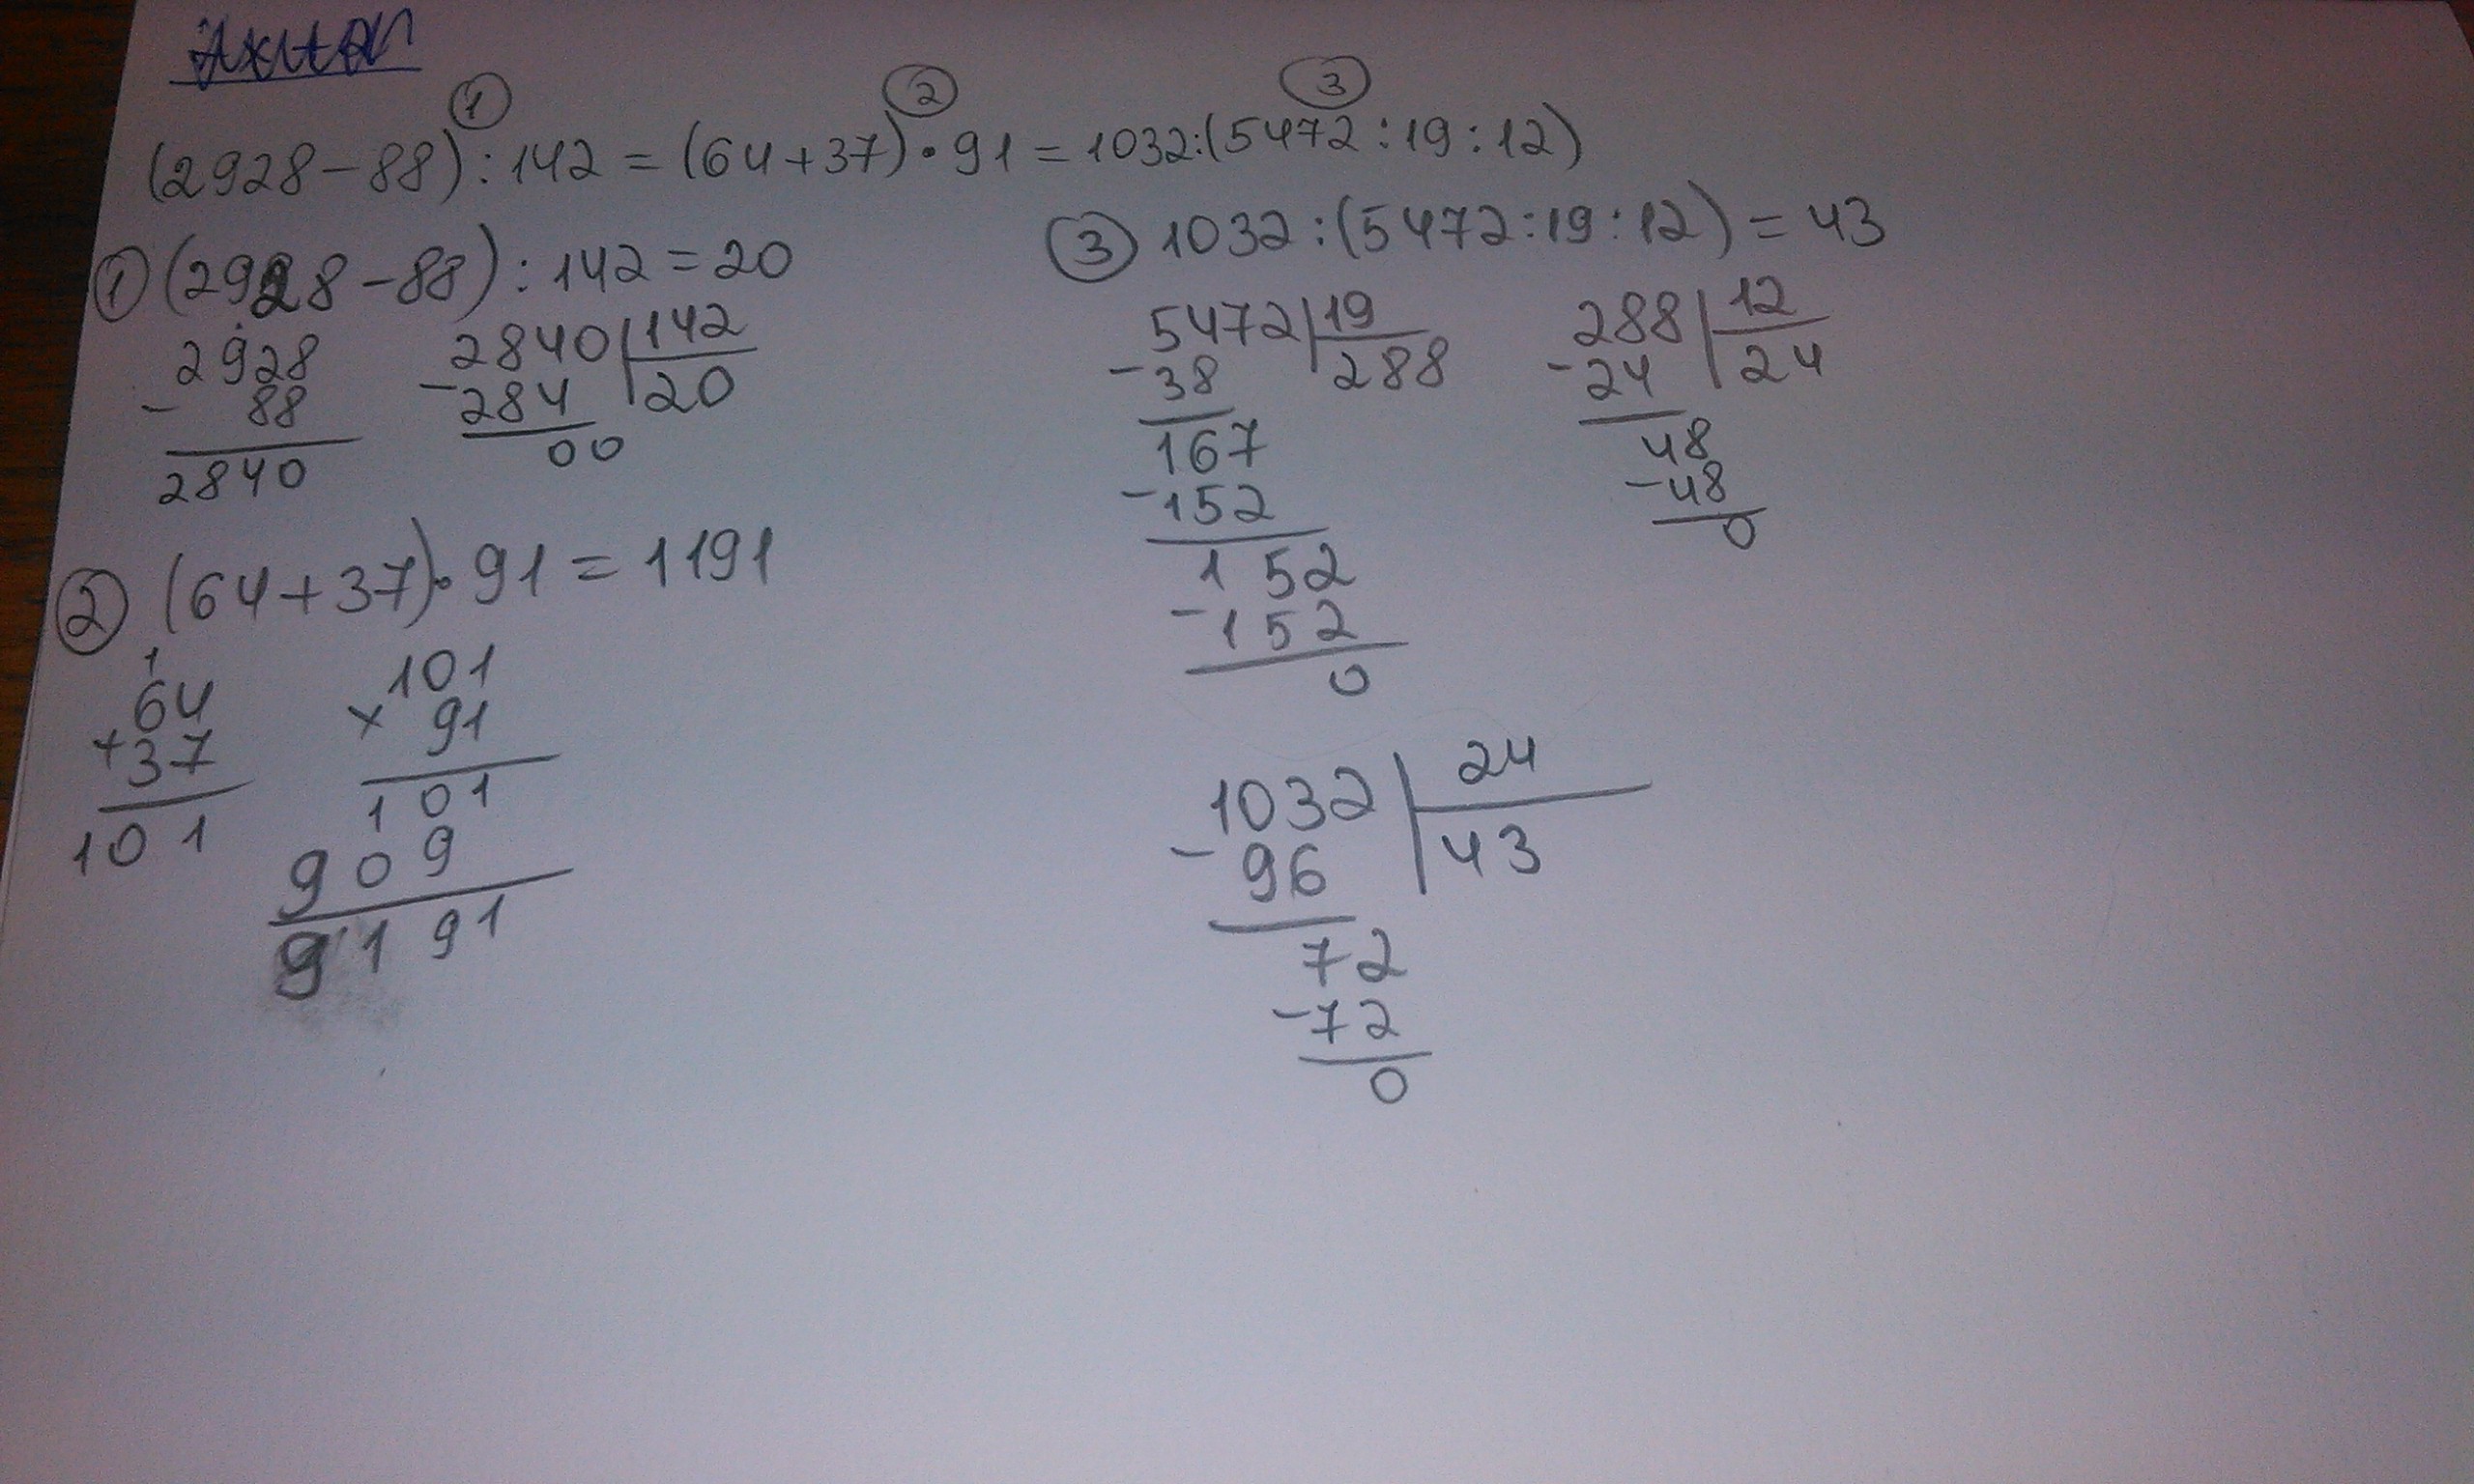 ① ② ③
(2928-88):142=(64+37)·91=1032:(5472:19:12)
① (2928-88):142=20
2928
- 88
2840
2840 | 142
-284 | 20
00
② (64+37)·91=1191
1
64
+37
101
101
× 91
101
909
9191
③ 1032:(5472:19:12)=43
5472 | 19
-38 | 288
167
-152
152
-152
0
288 | 12
-24 | 24
48
-48
0
1032 | 24
-96 | 43
72
-72
0